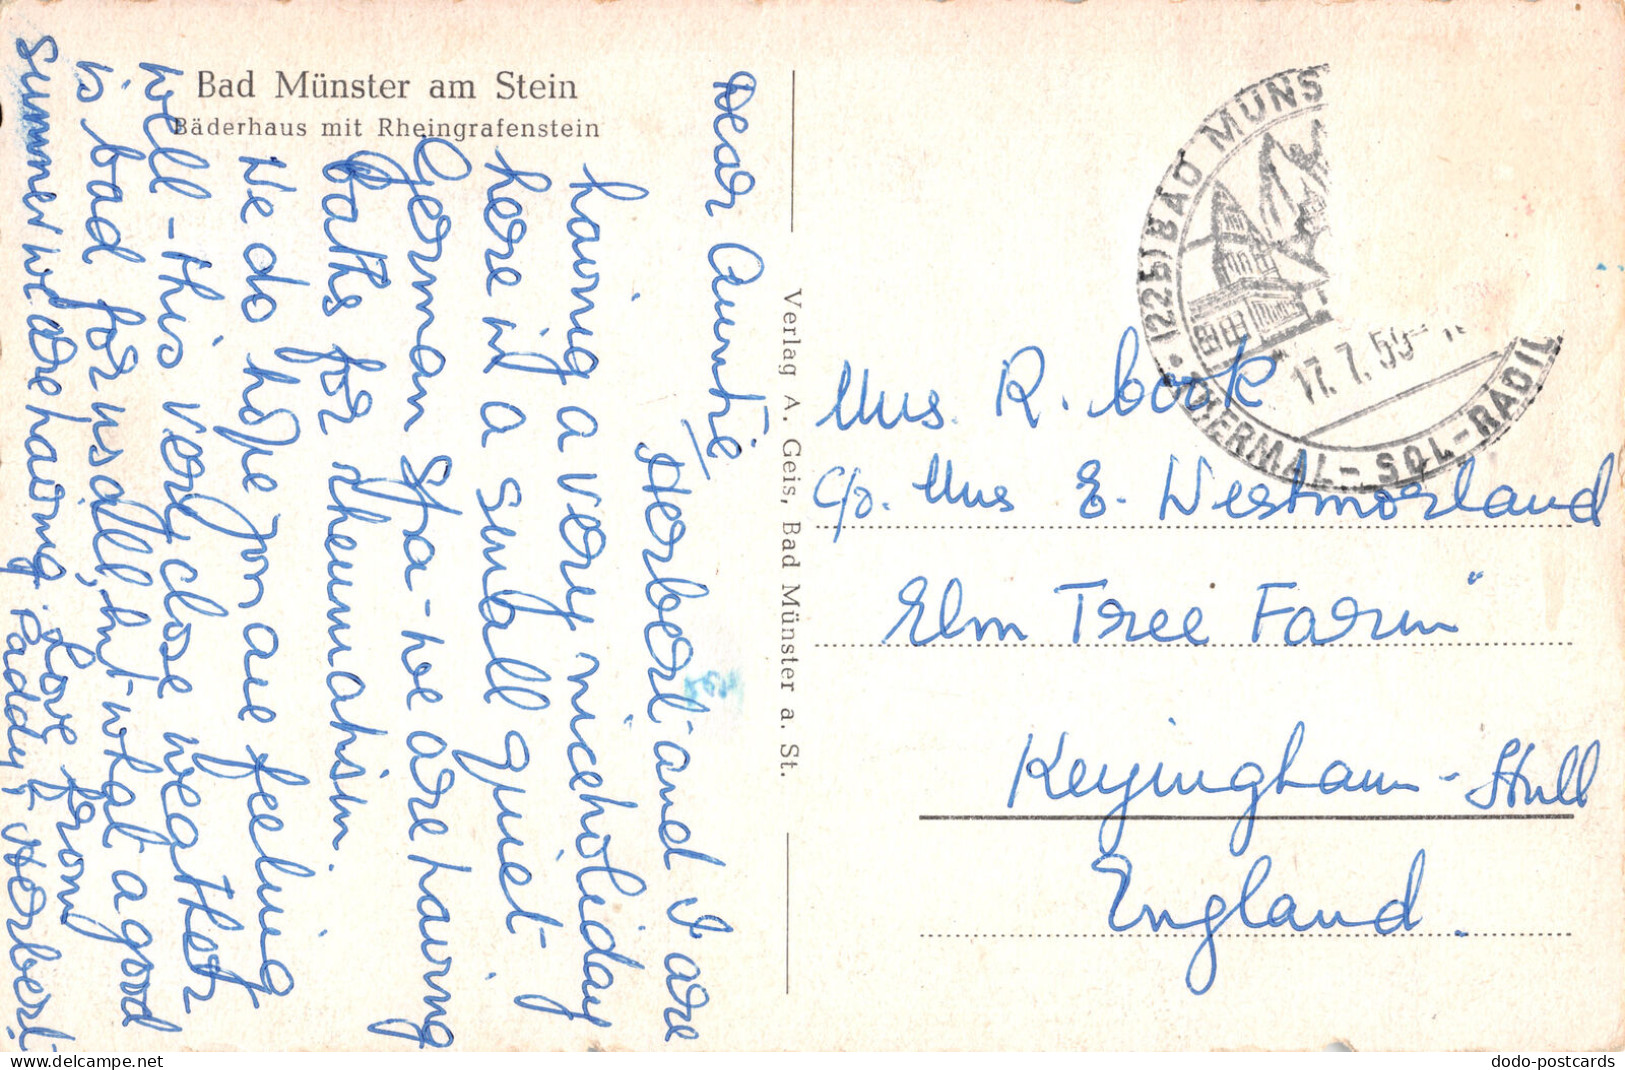 Bad Münster am Stein
Bäderhaus mit Rheingrafenstein
Dear Auntie
Herbert and I are
having a very nice holiday
here in a small quiet
German Spa - we are having
Baths for rheumatism.
We do hope you are feeling
well - this very close weather
is bad for us all, but what a good
summer we are having. Love from
Paddy & Herbert.
Verlag A. Geis, Bad Münster a. St.
(22b) BAD MÜNS
17.7.59
THERMAL-SOL-RADI
Mrs. R. Cook
c/o. Mrs E. Westmorland
Elm Tree Farm"
Keyingham - Hull
England.
dodo-postcards